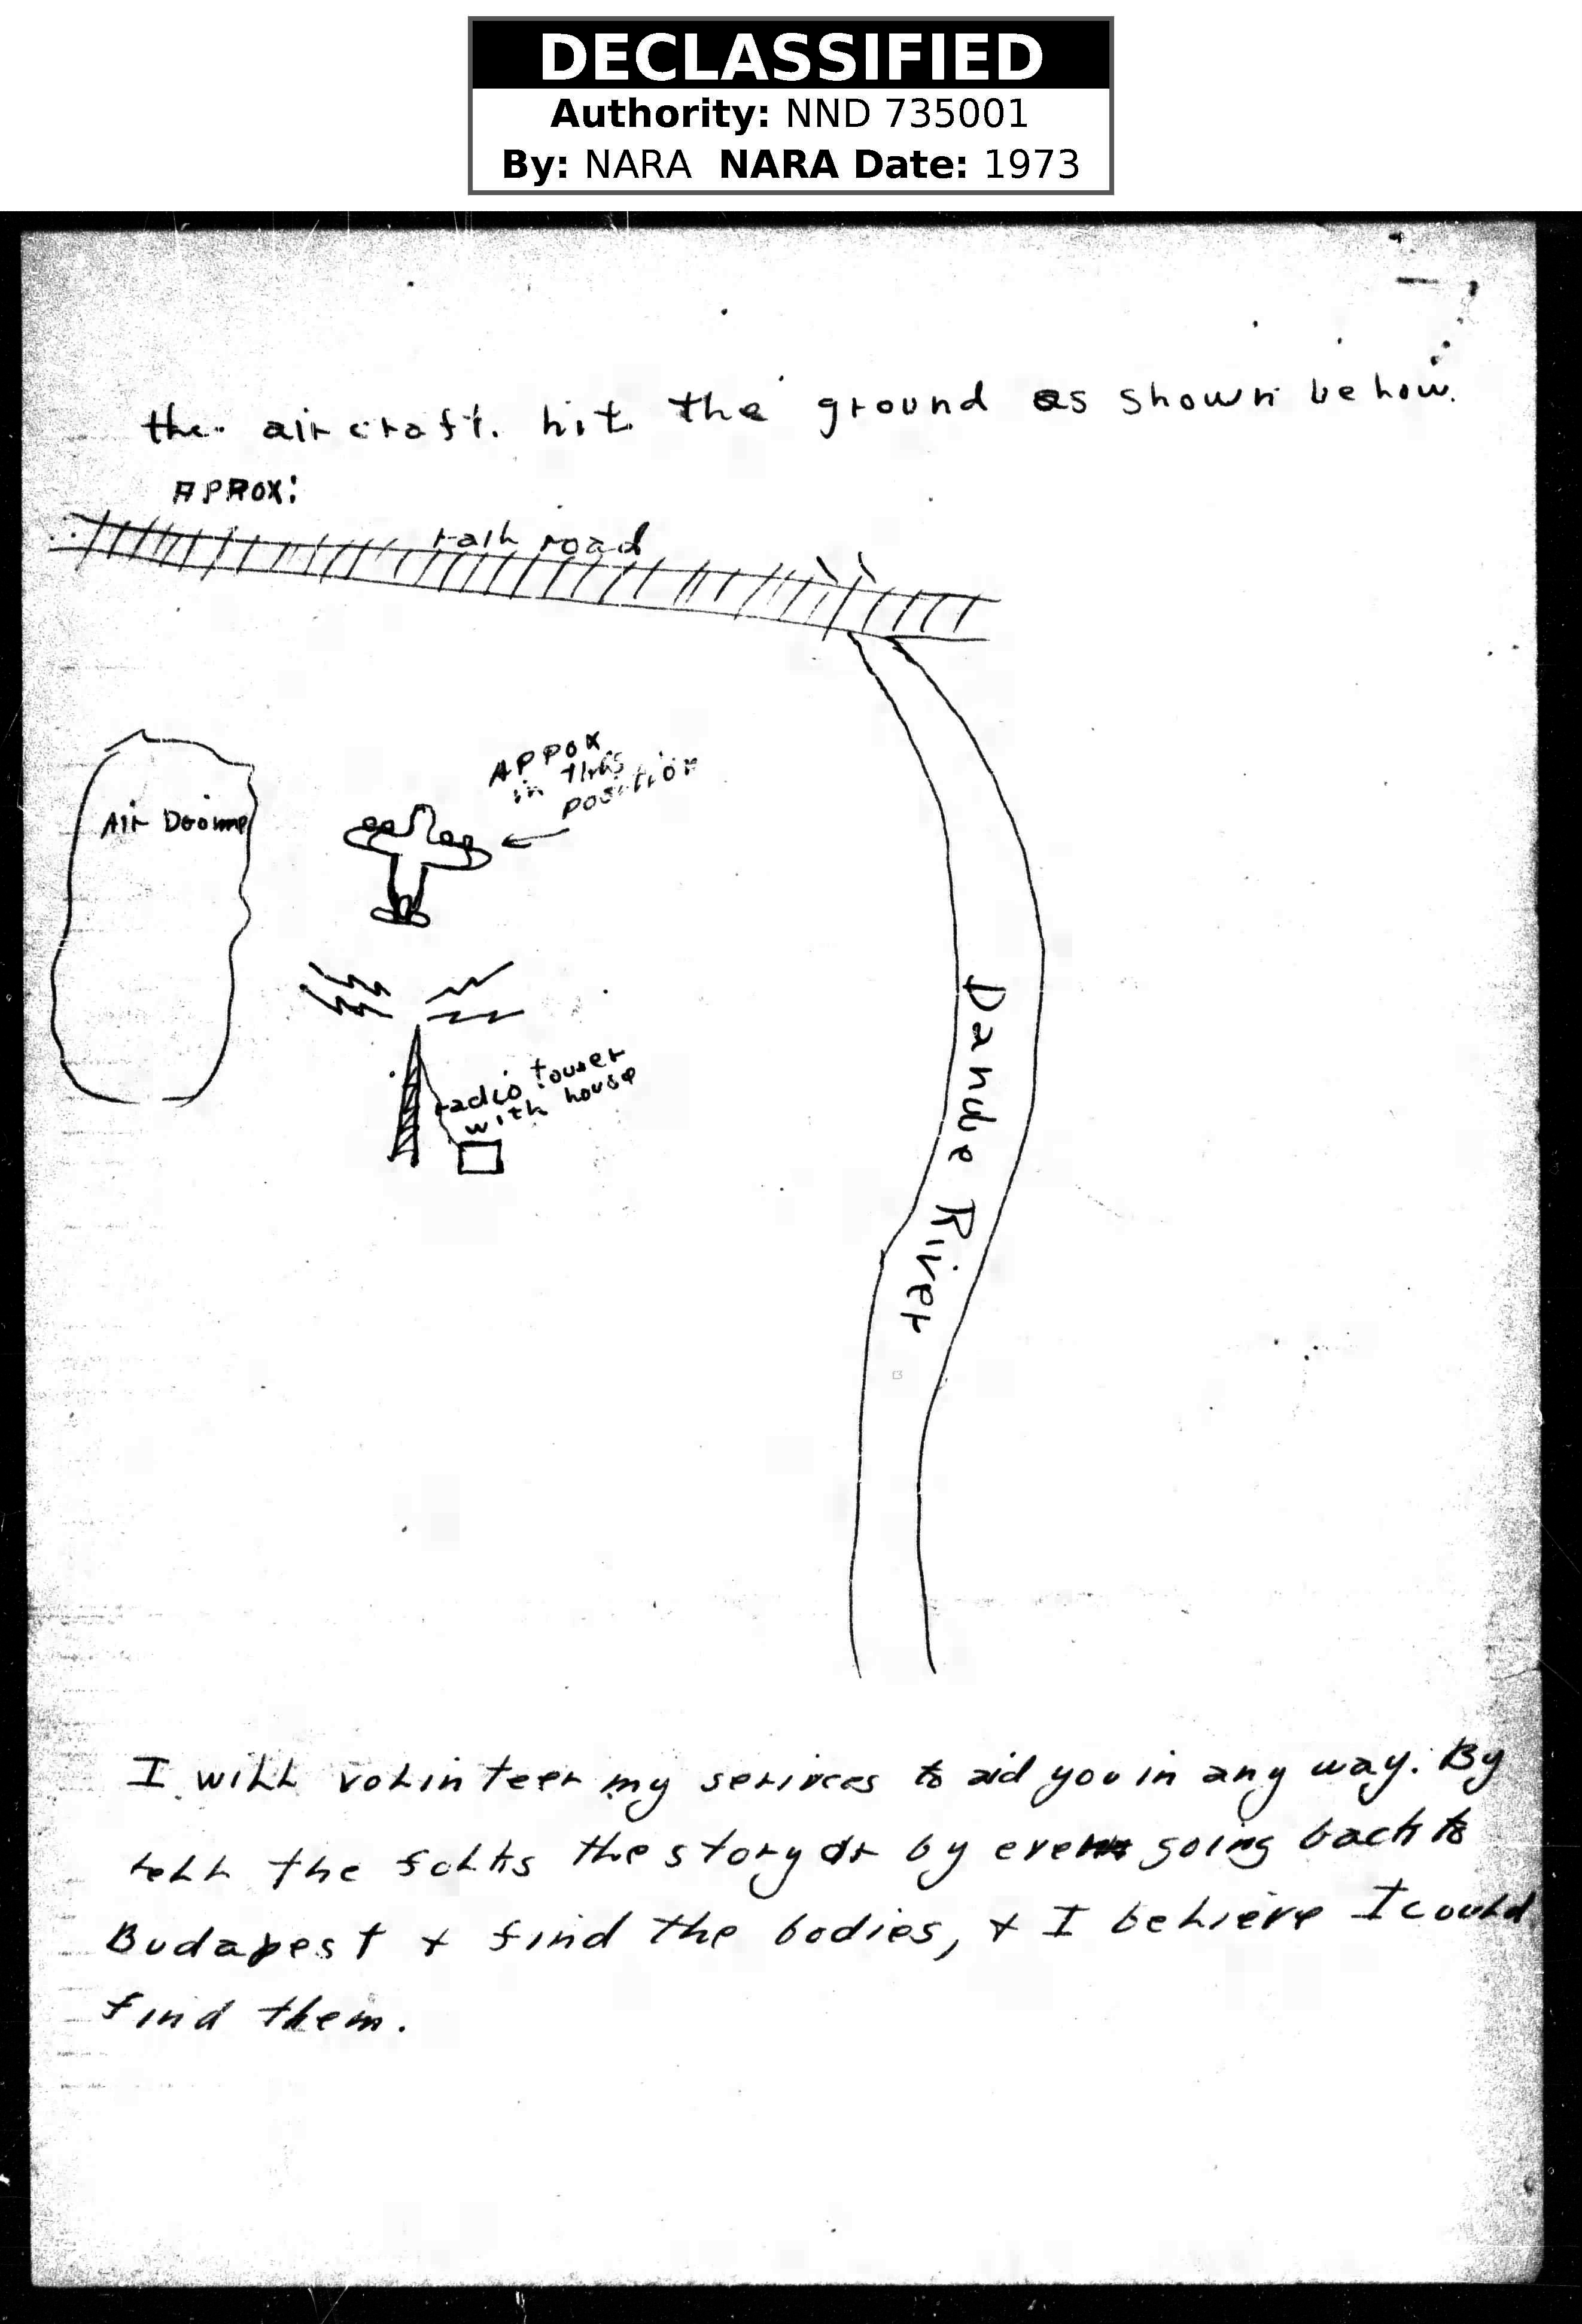 DECLASSIFIED
Authority: NND 735001
By: NARA NARA Date: 1973
the aircraft hit the ground as shown below.
APROX:
rail road
APPOX
in this
position
Air Drome
radio tower
with house
Danube River
I will volinteer my serivces to aid you in any way. By
tell the folks the story or by even going back to
Budapest + find the bodies, + I believe I could
find them.